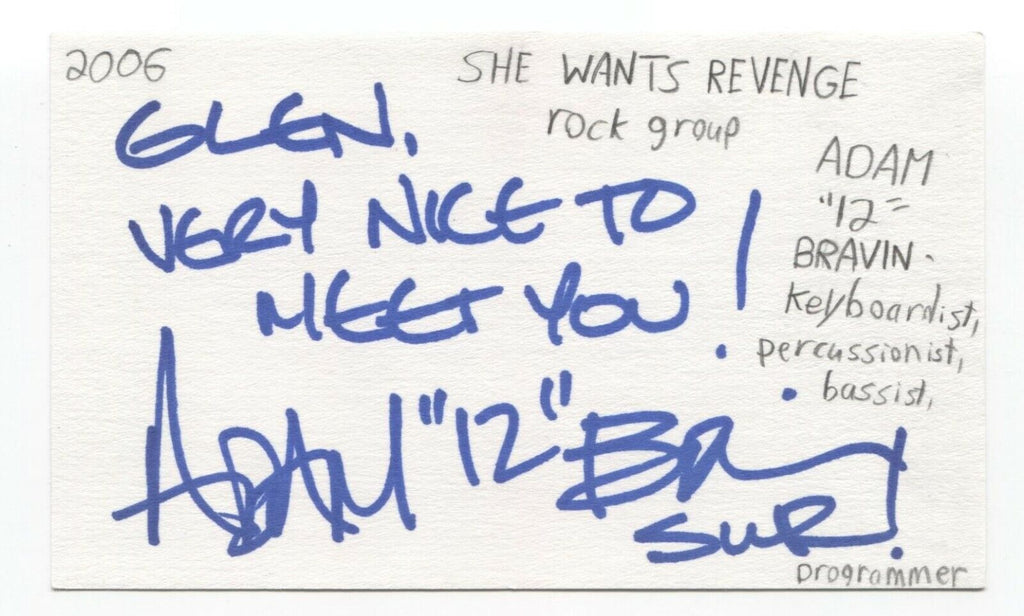 2006
SHE WANTS REVENGE
rock group
GLEN,
VERY NICE TO
MEET YOU!
ADAM
"12"
BRAVIN -
keyboardist,
percussionist,
bassist,
ADAM "12" BR
SWR!
programmer